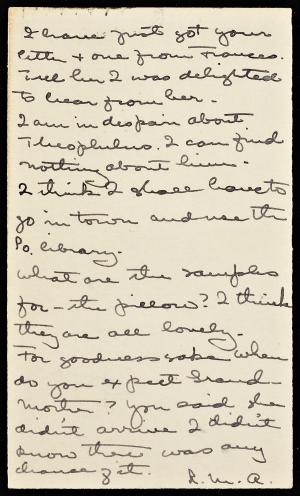 I have just got your
letter & one from Frances.
Tell her I was delighted
to hear from her -
I am in despair about
Theophilus. I can find
nothing about him -
I think I shall have to
go in town and use the
Po. library.
What are the samples
for - the pillow? I think
they are all lovely -
For goodness sake when
do you expect Grand-
mother? You said she
didn't arrive I didn't
know there was any
chance of it.
R. M. A.